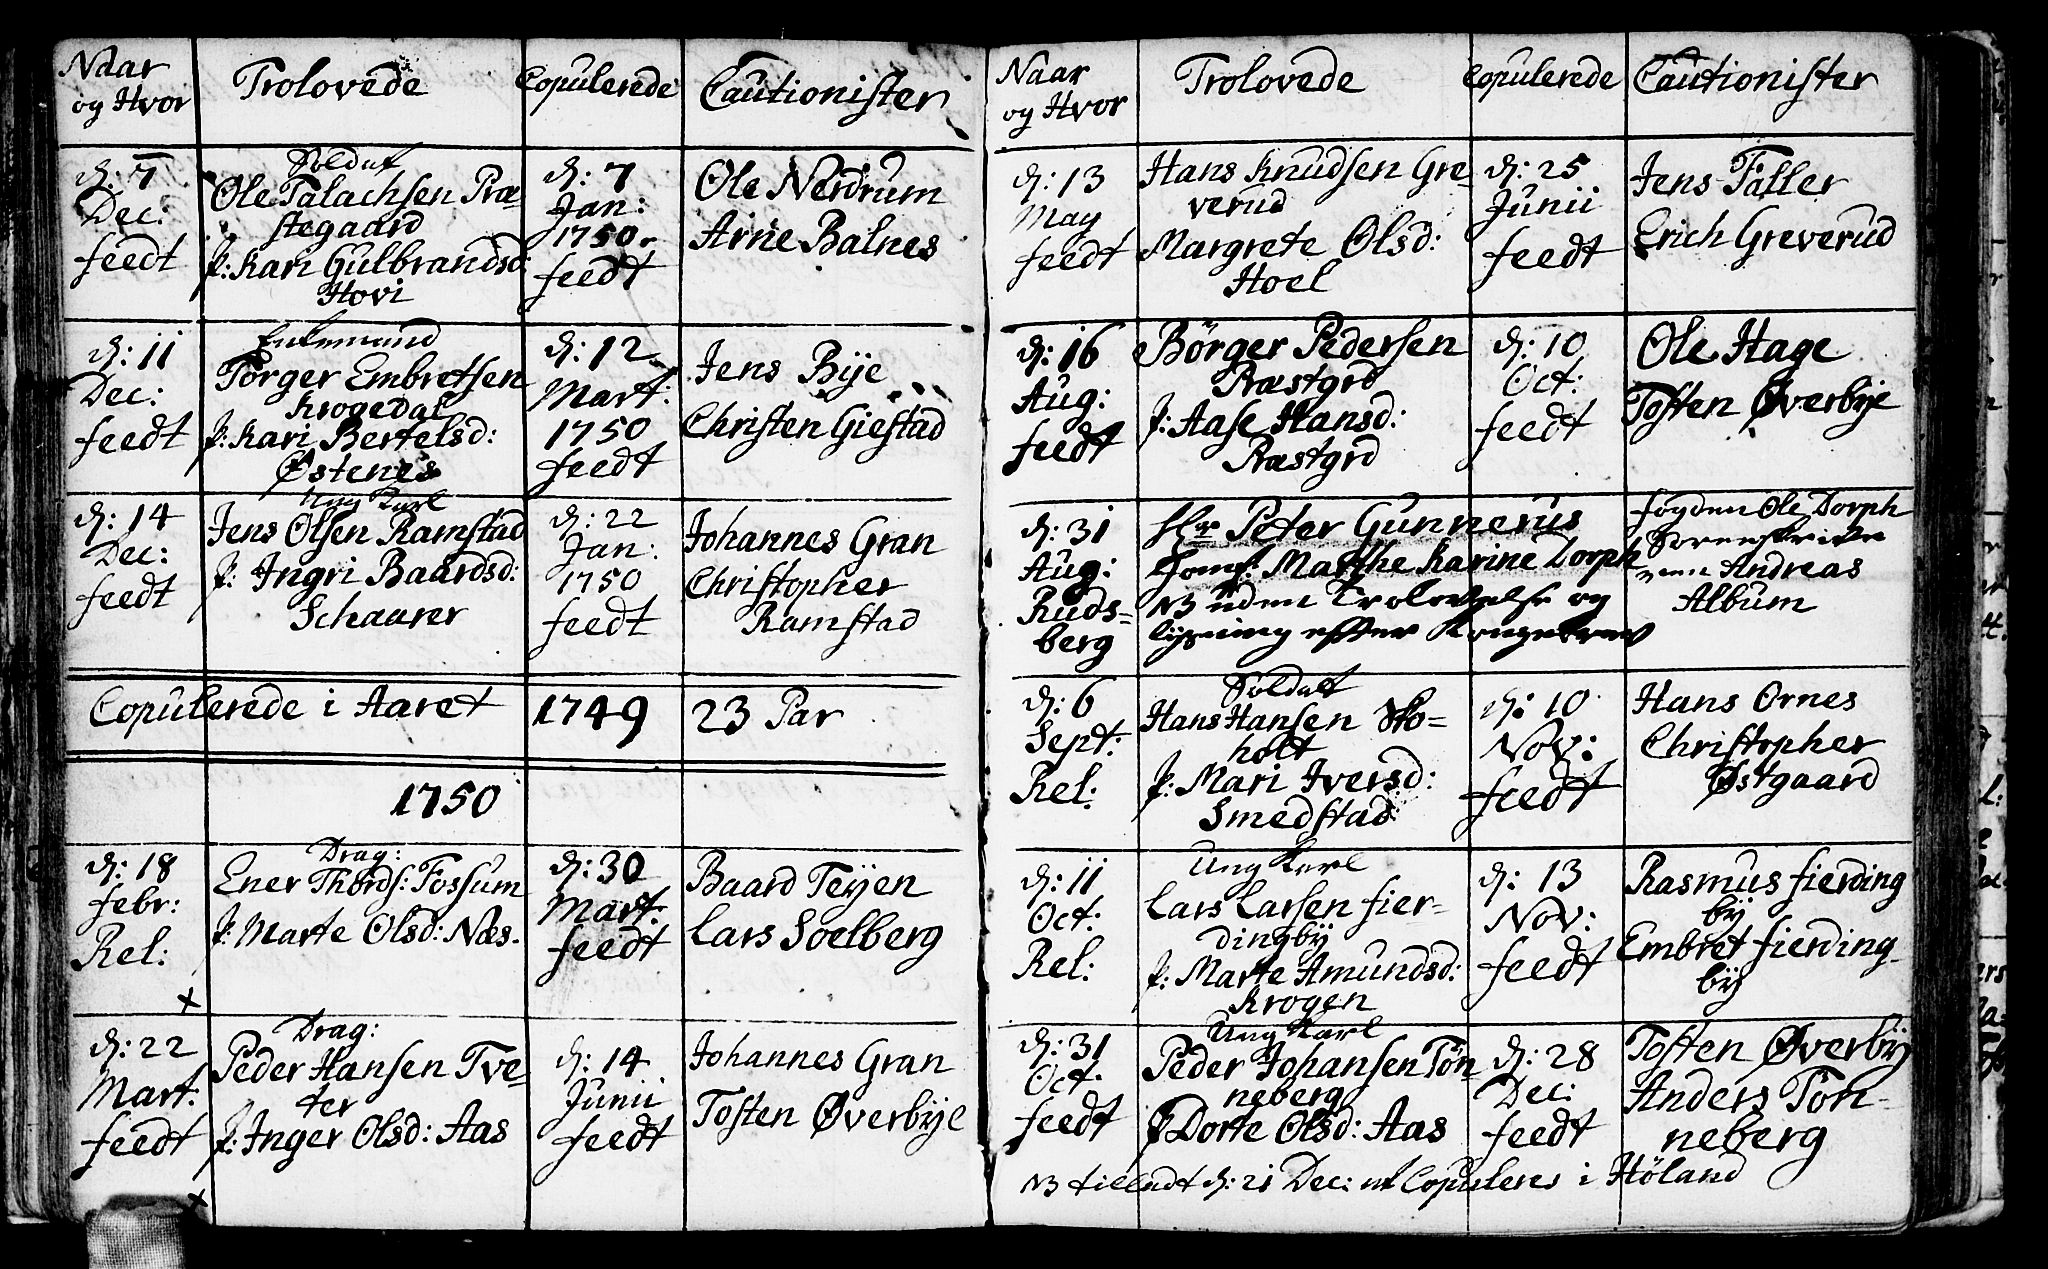 Naar
og Hvor
Trolovede
Copulerede
Cautionister
d: 7
Dec:
feedt
Soldat
Ole Talachsen Præ-
stegaard
P: Kari Gulbrandsd:
Hovi
d: 7
Jan:
1750
feedt
Ole Nerdrum
Arne Balnes
d: 11
Dec:
feedt
Enkemand
Torger Embretsen
Krogedal
P: Kari Bertelsd:
Østenes
d: 12
Mart:
1750
feedt
Jens Bye
Christen Giestad
d: 14
Dec:
feedt
Ung Karl
Jens Olsen Ramstad
P: Ingri Baardsd:
Schaarer
d: 22
Jan:
1750
feedt
Johannes Gran
Christopher
Ramstad
Copulerede i Aaret 1749 23 Par
1750
d: 18
febr:
Rel:
Drag:
Ener Thords: Fossum
P: Marte Olsd: Næs.
d: 30
Mart:
feedt
Baard Teyen
Lars Soelberg
d: 22
Mart:
feedt
Drag:
Peder Hansen Tve-
ter
P: Inger Olsd: Aas
d: 14
Junii
feedt
Johannes Gran
Tosten Øverbye
Naar
og Hvor
Trolovede
Copulerede
Cautionister
d: 13
May
feedt
Hans Knudsen Gre-
verud
Margrete Olsd:
Hoel
d: 25
Junii
feedt
Jens Faller
Erich Greverud
d: 16
Aug:
feedt
Børger Pedersen
Præstgrd
P: Aase Hansd:
Præstgrd
d: 10
Oct:
feedt
Ole Hage
Tosten Øverbye
d: 31
Aug:
Ruds-
berg
Hr Peter Gunnerus
Jomf: Marthe Karine Dorph
NB uden Trolovelse og
lysning efter Kongebrev
fogden Ole Dorph
Sorenskrive
ren Andreas
Album
d: 6
Sept:
Rel:
Soldat
Hans Hansen Sko-
holt
P: Mari Iversd:
Smedstad
d: 10
Nov:
feedt
Hans Ornes
Christopher
Østgaard
d: 11
Oct.
Rel:
Ung Karl
Lars Larsen fier-
dingby
P: Marte Amundsd:
Krogen
d: 13
Nov:
feedt
Rasmus fierding
by
Embret fierding-
by
d: 31
Oct.
feedt
Ung Karl
Peder Johansen Tøn-
neberg
P Dorte Olsd: Aas
d: 28
Dec:
feedt
Tosten Øverby
Anders Tøn-
neberg
NB tilladt d: 21 Dec: at Copuleres i Høland